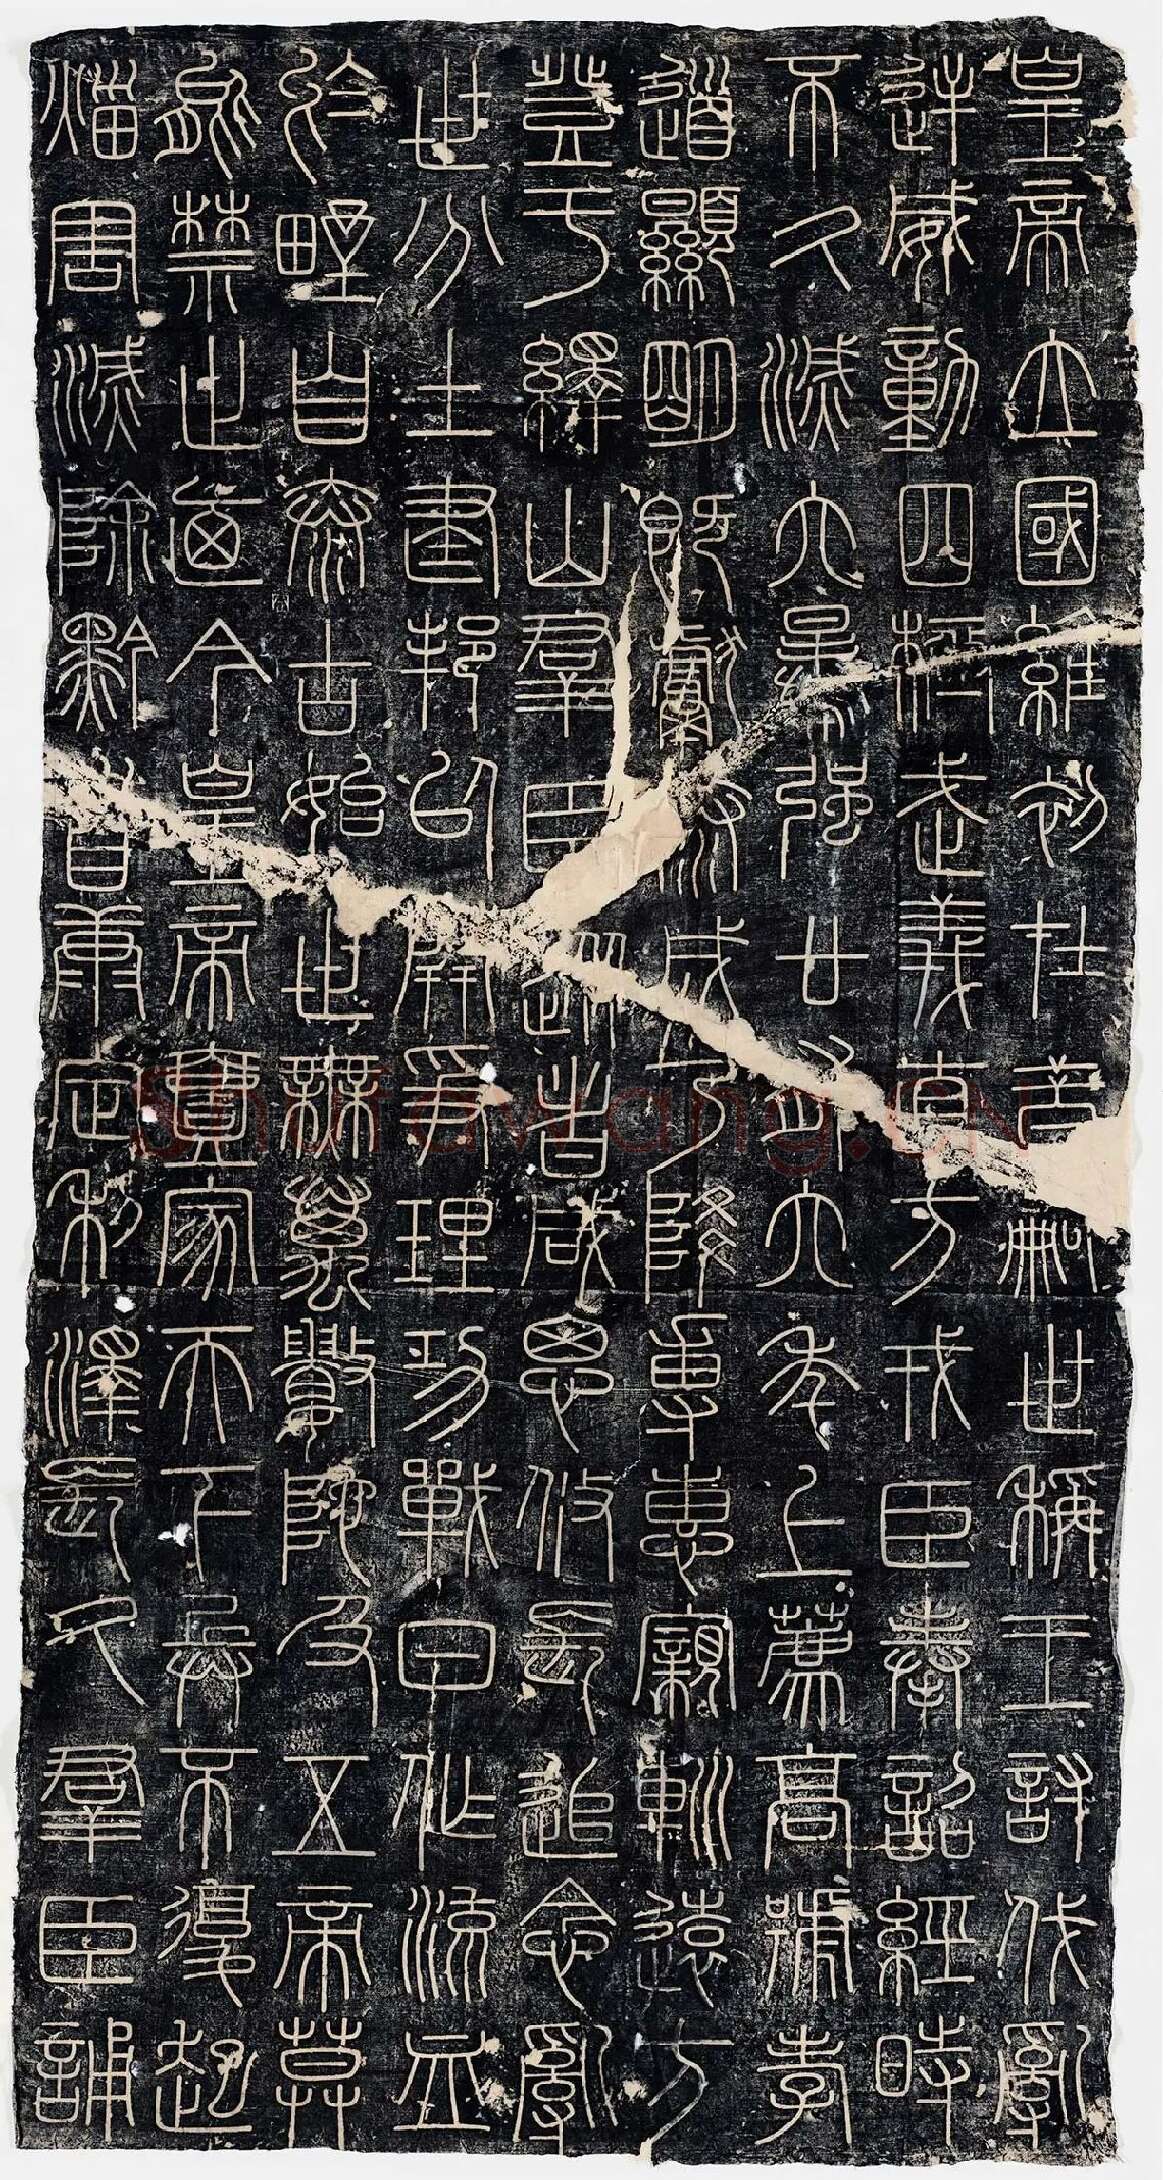 皇帝立國維初在昔嗣世稱王討伐亂
逆威動四極武義直方戎臣奉詔經時
不久滅六暴強廿有六年上薦高號孝
道顯明既獻泰成乃降專惠親巡遠方
登于繹山群臣從者咸思攸長追念亂
世分土建邦以開爭理功戰日作流血
於野自泰古始世無萬數陀及五帝莫
能禁止迺今皇帝壹家天下兵不復起
災害滅除黔首康定利澤長久群臣誦
Shufawang.CN